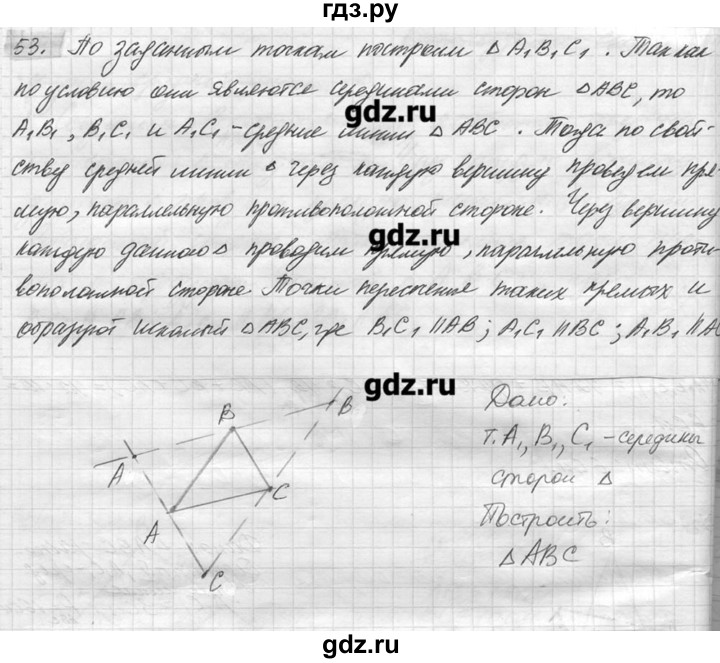 гдз.ру
53. По заданным точкам построим Δ A₁B₁C₁. Так как
по условию они являются серединами сторон ΔABC, то
A₁B₁, B₁C₁ и A₁C₁ - средние линии Δ ABC. Тогда по свой-
ству средней линии Δ через каждую вершину проведем пря-
мую, параллельную противоположной стороне. Через вершину
каждую данного Δ проводим прямую, параллельную проти-
воположной стороне. Точки пересечения таких прямых и
образуют искомый ΔABC, где B₁C₁ || AB; A₁C₁ || BC; A₁B₁ || AC
gdz.ru
gdz.ru
gdz.ru
B
B
A
C
A
C
Дано:
т. A₁, B₁, C₁ - середины
сторон Δ
Построить:
Δ ABC
gdz.ru